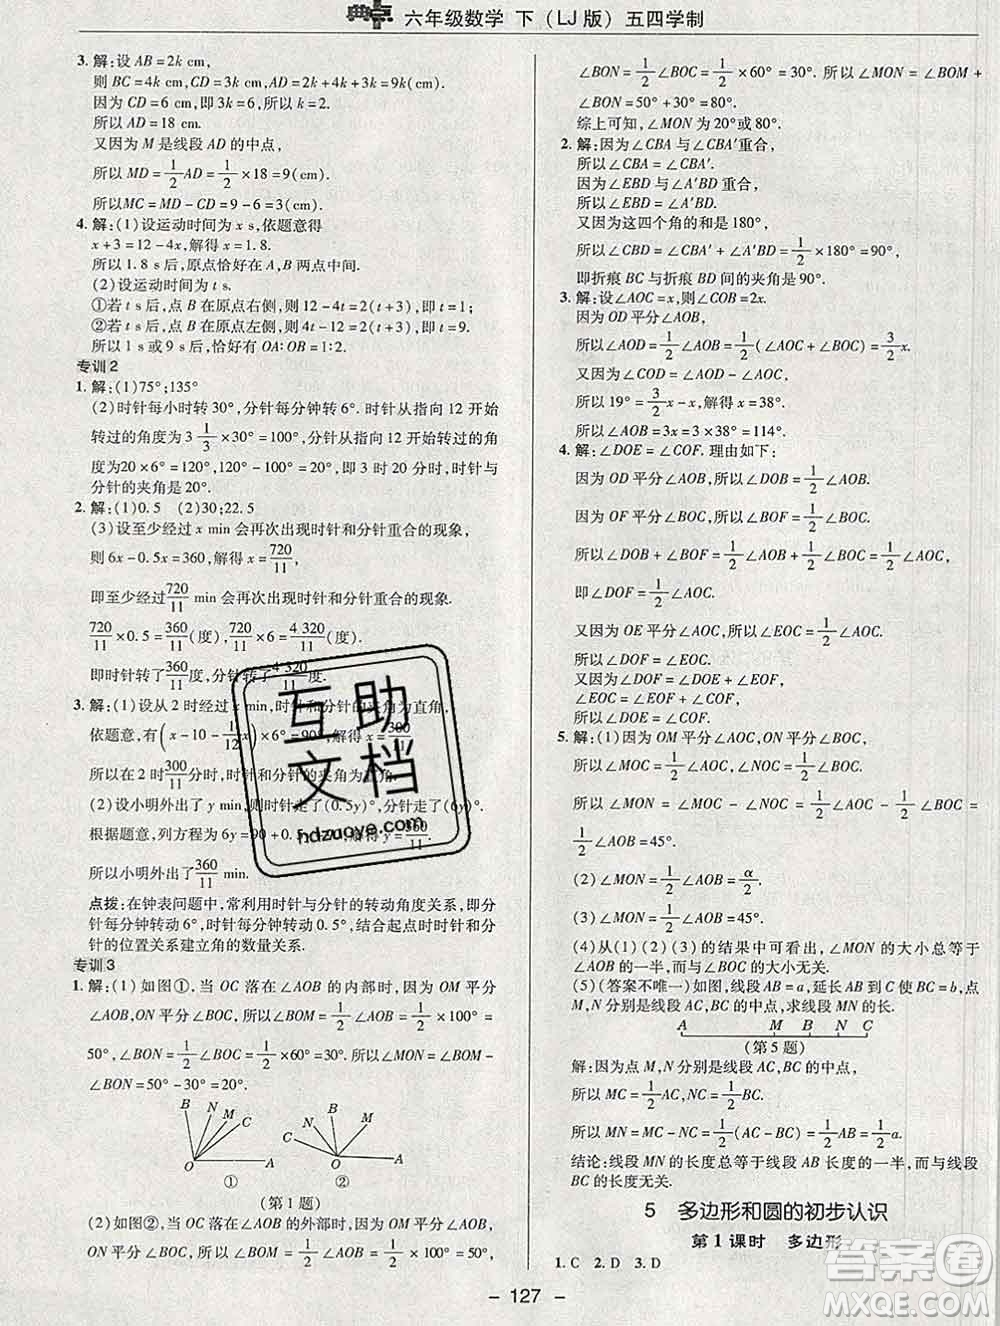 典点 六年级数学 下（LJ版）五四学制
3. 解:设 AB=2k cm,
则 BC=4k cm,CD=3k cm,AD=2k+4k+3k=9k(cm).
因为 CD=6 cm,即3k=6,所以 k=2.
所以 AD=18 cm.
又因为 M 是线段 AD 的中点,
所以 MD=1/2 AD=1/2×18=9(cm).
所以MC=MD-CD=9-6=3(cm).
4. 解:(1)设运动时间为 x s,依题意得
x+3=12-4x,解得 x=1.8.
所以1.8 s后,原点恰好在 A,B 两点中间.
(2)设运动时间为 t s.
①若 t s后,点 B 在原点右侧,则12-4t=2(t+3),即 t=1;
②若 t s后,点 B 在原点左侧,则4t-12=2(t+3),即 t=9.
所以1 s或9 s后,恰好有 OA∶OB=1∶2.
专训2
1. 解:(1)75°;135°
(2)时针每小时转30°,分针每分钟转6°. 时针从指向12开始
转过的角度为3 1/3×30°=100°,分针从指向12开始转过的角
度为20×6°=120°,120°-100°=20°,即3时20分时,时针与
分针的夹角是20°.
2. 解:(1)0.5 (2)30;22.5
(3)设至少经过 x min 会再次出现时针和分针重合的现象,
则 6x-0.5x=360,解得 x=720/11,
即至少经过720/11 min会再次出现时针和分针重合的现象.
720/11×0.5=360/11(度),720/11×6=4 320/11(度),
即时针转了360/11度,分针转了4 320/11度.
3. 解:(1)设从2时经过 x min,时针和分针的夹角为直角.
依题意,有(x-10-1/12x)×6°=90°,解得 x=300/11.
所以在2时300/11分时,时针和分针的夹角为直角.
(2)设小明外出了 y min,则时针走了(0.5y)°,分针走了(6y)°.
根据题意,列方程为6y=90+0.5
所以小明外出了360/11 min.
点拨:在钟表问题中,常利用时针与分针的转动角度关系,即分
针每分钟转动6°,时针每分钟转动0.5°,结合起点时针和分
针的位置关系建立角的数量关系.
专训3
1. 解:(1)如图①,当 OC 落在∠AOB 的内部时,因为 OM 平分
∠AOB,ON平分∠BOC,所以∠BOM=1/2∠AOB=1/2×100°=
50°,∠BON=1/2∠BOC=1/2×60°=30°. 所以∠MON=∠BOM-
∠BON=50°-30°=20°.
B N M C O A ①
B N M C O A ②
(第1题)
(2)如图②,当 OC 落在∠AOB的外部时,因为 OM 平分∠AOB,
ON平分∠BOC,所以∠BOM=1/2∠AOB=1/2×100°=50°,
∠BON=1/2∠BOC=1/2×60°=30°. 所以∠MON=∠BOM+
∠BON=50°+30°=80°.
综上可知,∠MON为20°或80°.
2. 解:因为∠CBA与∠CBA′重合,
所以∠CBA=∠CBA′.
因为∠EBD与∠A′BD重合,
所以∠EBD=∠A′BD.
又因为这四个角的和是180°,
所以∠CBD=∠CBA′+∠A′BD=1/2×180°=90°,
即折痕 BC 与折痕 BD 间的夹角是90°.
3. 解:设∠AOC=x,则∠COB=2x.
因为 OD 平分∠AOB,
所以∠AOD=1/2∠AOB=1/2(∠AOC+∠BOC)=3/2x.
又因为∠COD=∠AOD-∠AOC,
所以19°=3/2x-x,解得 x=38°.
所以∠AOB=3x=3×38°=114°.
4. 解:∠DOE=∠COF. 理由如下:
因为 OD 平分∠AOB,所以∠DOB=1/2∠AOB.
因为 OF 平分∠BOC,所以∠BOF=1/2∠BOC.
所以∠DOB+∠BOF=1/2∠AOB+1/2∠BOC=1/2∠AOC,
即∠DOF=1/2∠AOC.
又因为 OE 平分∠AOC,所以∠EOC=1/2∠AOC.
所以∠DOF=∠EOC.
又因为∠DOF=∠DOE+∠EOF,
∠EOC=∠EOF+∠COF,
所以∠DOE=∠COF.
5. 解:(1)因为 OM 平分∠AOC,ON平分∠BOC,
所以∠MOC=1/2∠AOC,∠NOC=1/2∠BOC.
所以∠MON=∠MOC-∠NOC=1/2∠AOC-1/2∠BOC=
1/2∠AOB=45°.
(2)∠MON=1/2∠AOB=α/2.
(3)∠MON=1/2∠AOB=45°.
(4)从(1)(2)(3)的结果中可看出,∠MON的大小总等于
∠AOB的一半,而与∠BOC的大小无关.
(5)(答案不唯一)如图,线段AB=a,延长AB到C使BC=b,点
M,N分别是线段AC,BC的中点,求线段MN的长.
A M B N C
(第5题)
解:因为点 M,N分别是线段AC,BC的中点,
所以 MC=1/2AC,NC=1/2BC.
所以 MN=MC-NC=1/2(AC-BC)=1/2AB=1/2a.
结论:线段MN的长度总等于线段AB长度的一半,而与线段
BC的长度无关.
5 多边形和圆的初步认识
第1课时 多边形
1. C 2. D 3. D
- 127 -
互助文档
hdzuoye.com
答案圈
MXQE.COM